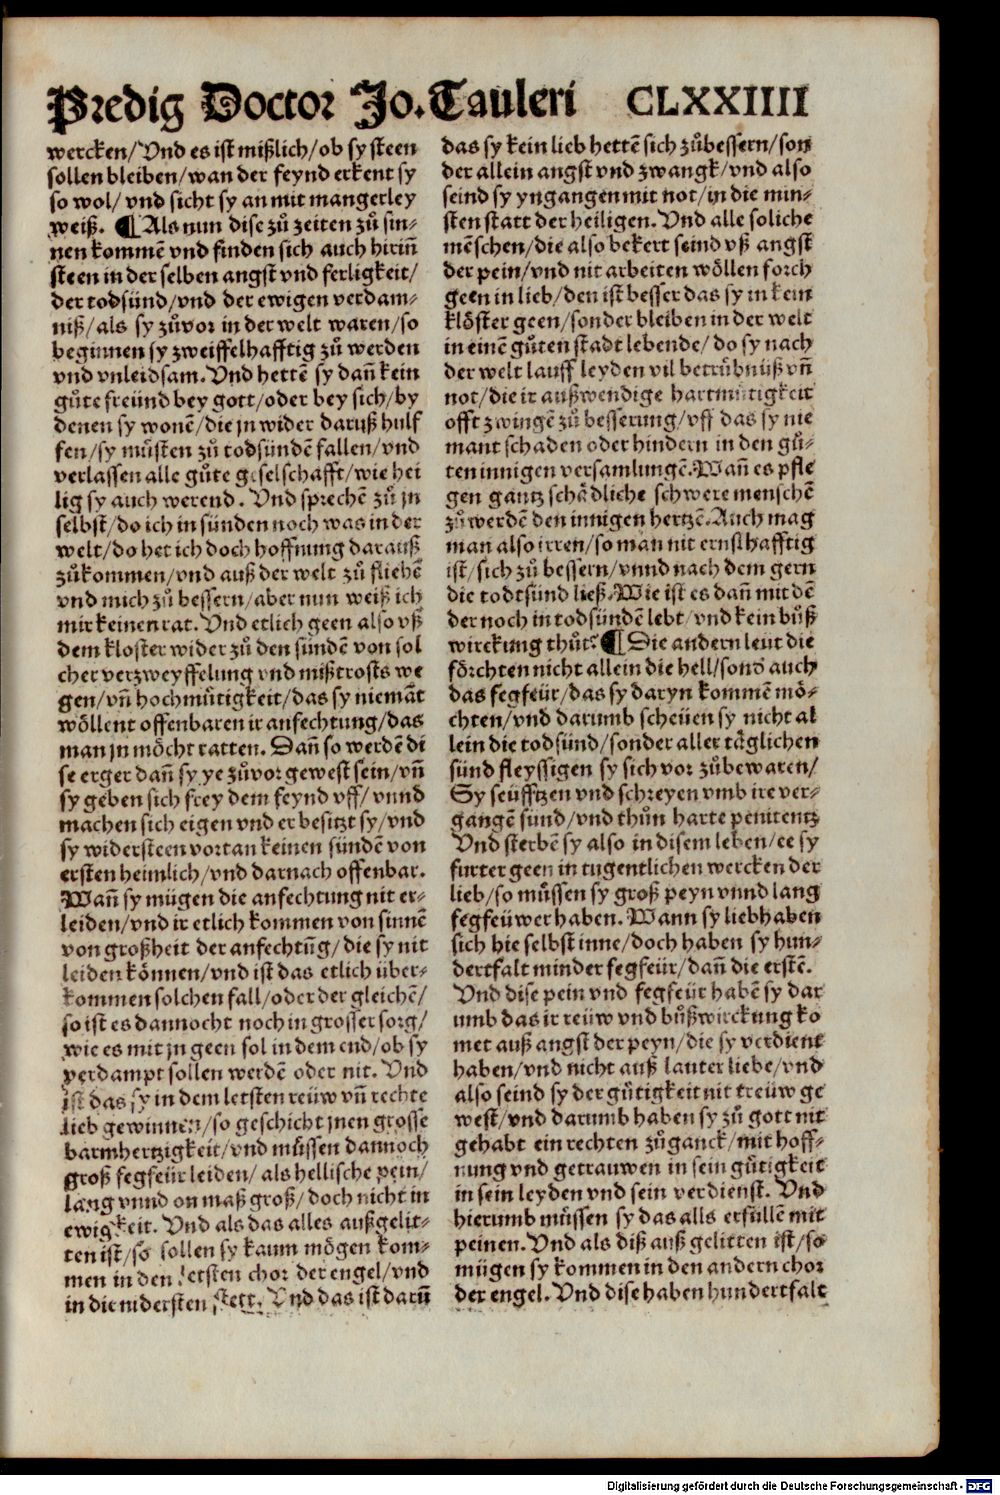 Predig Doctor Jo. Tauleri CLXXIIII
wercken/Vnd es ist mißlich/ob sy steen
sollen bleiben/wan der feynd erkent sy
so wol/ vnd sicht sy an mit mangerley
weiß. ¶ Als nun dise zů zeiten zů sin⸗
nen kommē vnd finden sich auch hirin̄
steen in der selben angst vnd ferligkeit/
der todsünd/vnd der ewigen verdam⸗
niß/als sy zůvor in der welt waren/so
beginnen sy zweiffelhafftig zů werden
vnd vnleidsam. Vnd hettē sy dan̄ kein
gůte freünd bey gott/oder bey sich/by
denen sy wonē/die jn wider daruß hulf
fen/sy můsten zů todsündē fallen/vnd
verlassen alle gůte geselschafft/wie hei
lig sy auch werend. Vnd sprechē zů jn
selbst/do ich in sünden noch was in der
welt/do het ich doch hoffnung darauß
zůkommen/vnd auß der welt zů fliehē
vnd mich zů bessern/aber nun weiß ich
mir keinen rat. Vnd etlich geen also vß
dem kloster wider zů den sündē von sol
cher verzweyffelung vnd mißtrosts we
gen/vn̄ hochmůtigkeit/das sy niemāt
wöllent offenbaren ir anfechtung/das
man jn möcht ratten. Dan̄ so werdē di
se erger dan̄ sy ye zůvor gewest sein/vn̄
sy geben sich frey dem feynd vff/ vnnd
machen sich eigen vnd er besitzt sy/vnd
sy widersteen vortan keinen sündē von
ersten heimlich/vnd darnach offenbar.
Wan̄ sy mügen die anfechtung nit er⸗
leiden/vnd ir etlich kommen von sinnē
von großheit der anfechtūg/die sy nit
leiden können/vnd ist das etlich über⸗
kommen solchen fall/oder der gleichē/
so ist es dannocht noch in grosser sorg/
wie es mit jn geen sol in dem end/ob sy
verdampt sollen werdē oder nit. Vnd
ist das sy in dem letsten reüw vn̄ rechte
lieb gewinnen/so geschicht jnen grosse
barmhertzigkeit/vnd müssen dannoch
groß fegfeür leiden/ als hellische pein/
lang vnnd on maß groß/doch nicht in
ewigkeit. Vnd als das alles außgelit⸗
ten ist/so sollen sy kaum mögen kom⸗
men in den letsten chor der engel/vnd
in die nidersten stett. Vnd das ist darū
das sy kein lieb hettē sich zůbessern/son
der allein angst vnd zwangk/vnd also
seind sy yngangen mit not/in die min⸗
sten statt der heiligen. Vnd alle soliche
mēschen/die also bekert seind vß angst
der pein/vnd nit arbeiten wöllen forch
geen in lieb/den ist besser das sy in kein
klöster geen/sonder bleiben in der welt
in einē gůten stadt lebende/ do sy nach
der welt lauff leyden vil betrůbnüß vn̄
not/die ir außwendige hartmůtigkeit
offt zwingē zů besserung/vff das sy nie
mant schaden oder hindern in den gů⸗
ten innigen versamlungē. Wan̄ es pfle
gen gantz schädliche schwere menschē
zů werdē den innigen hertzē. Auch mag
man also irren/so man nit ernsthafftig
ist/sich zů bessern/vnnd nach dem gern
die todtsünd ließ. Wie ist es dan̄ mit dē
der noch in todsündē lebt/vnd kein bůß
wirckung thůt? ¶ Die andern leut die
förchten nicht allein die hell/sond auch
das fegfeür/das sy daryn kommē mö⸗
chten/vnd darumb scheüen sy nicht al
lein die todsünd/sonder aller täglichen
sünd fleyssigen sy sich vor zůbewaren/
Sy seüfftzen vnd schreyen vmb ire ver⸗
gangē sünd/vnd thůn harte penitentz
Vnd sterbē sy also in disem leben/ee sy
furter geen in tugentlichen wercken der
lieb/so müssen sy groß peyn vnnd lang
fegfeüwer haben. Wann sy liebhaben
sich hie selbst inne/doch haben sy hun⸗
dertfalt minder fegfeür/dan̄ die erstē.
Vnd dise pein vnd fegfeür habē sy dar
umb das ir reüw vnd bůßwirckung ko
met auß angst der peyn/die sy verdient
haben/vnd nicht auß lauter liebe/vnd
also seind sy der gůtigkeit nit treüw ge
west/vnd darumb haben sy zů gott nit
gehabt ein rechten zůganck/mit hoff⸗
nung vnd getrauwen in sein gůtigkeit
in sein leyden vnd sein verdienst. Vnd
hierumb müssen sy das alls erfüllē mit
peinen. Vnd als diß auß gelitten ist/so
mügen sy kommen in den andern chor
der engel. Vnd dise haben hundertfalt
Digitalisierung gefördert durch die Deutsche Forschungsgemeinschaft - DFG